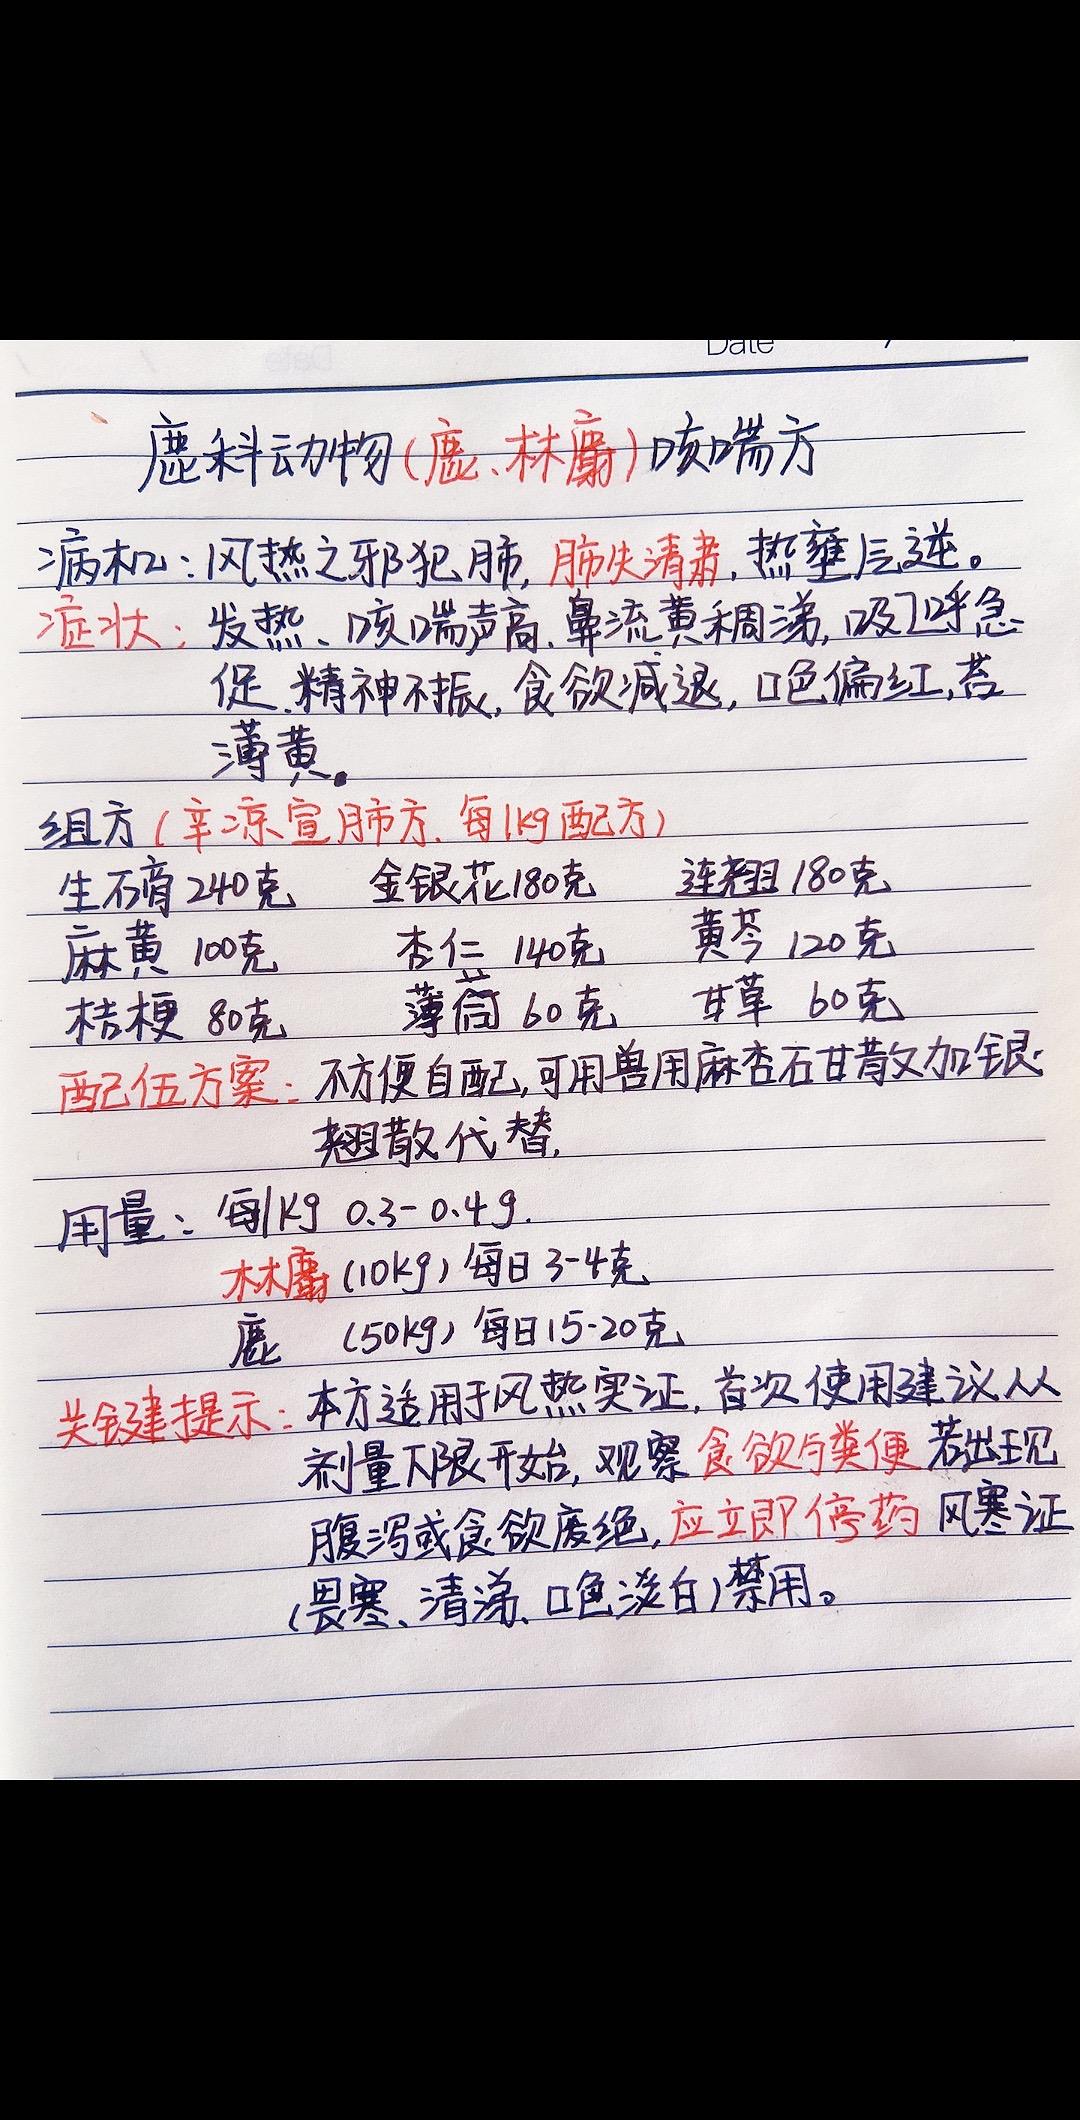 Date
鹿科动物(鹿、林麝)咳喘方
病机:风热之邪犯肺,肺失清肃,热壅气逆。
症状:发热、咳喘声高、鼻流黄稠涕,呼吸急
促、精神不振,食欲减退,口色偏红,苔
薄黄。
组方(辛凉宣肺方、每1kg配方)
生石膏240克 金银花180克 连翘180克
麻黄 100克 杏仁 140克 黄芩 120克
桔梗 80克 薄荷 60克 甘草 60克
配伍方案:不方便自配,可用兽用麻杏石甘散加银
翘散代替.
用量:每1kg 0.3-0.4g.
林麝(10kg)每日3-4克
鹿 (50kg)每日15-20克
关键提示:本方适用于风热实证,首次使用建议从
剂量下限开始,观察食欲与粪便 若出现
腹泻或食欲废绝,应立即停药 风寒证
(畏寒、清涕、口色淡白)禁用。